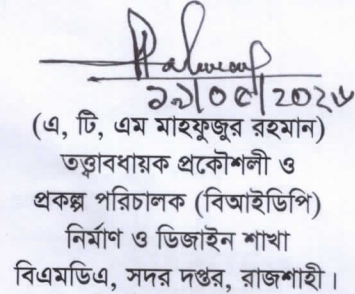 (এ, টি, এম মাহফুজুর রহমান)
তত্ত্বাবধায়ক প্রকৌশলী ও
প্রকল্প পরিচালক (বিআইডিপি)
নির্মাণ ও ডিজাইন শাখা
বিএমডিএ, সদর দপ্তর, রাজশাহী।